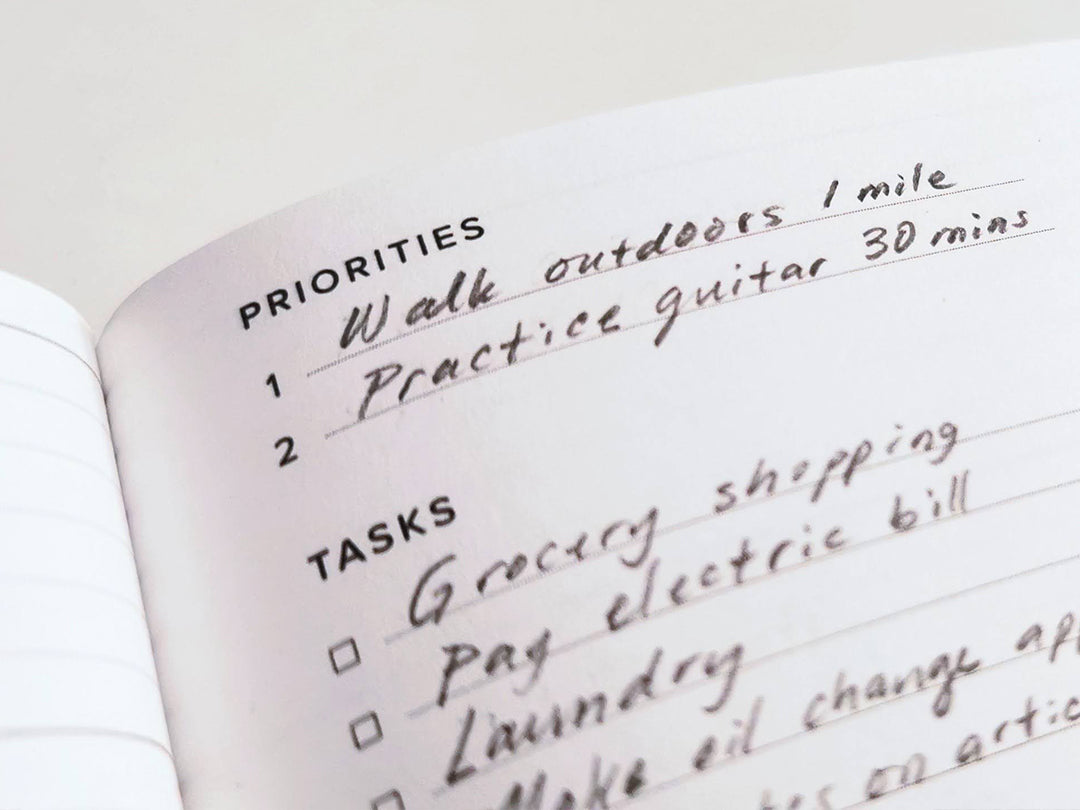 PRIORITIES
1 Walk outdoors 1 mile
2 Practice guitar 30 mins
TASKS
Grocery shopping
Pay electric bill
Laundry
Make oil change
on